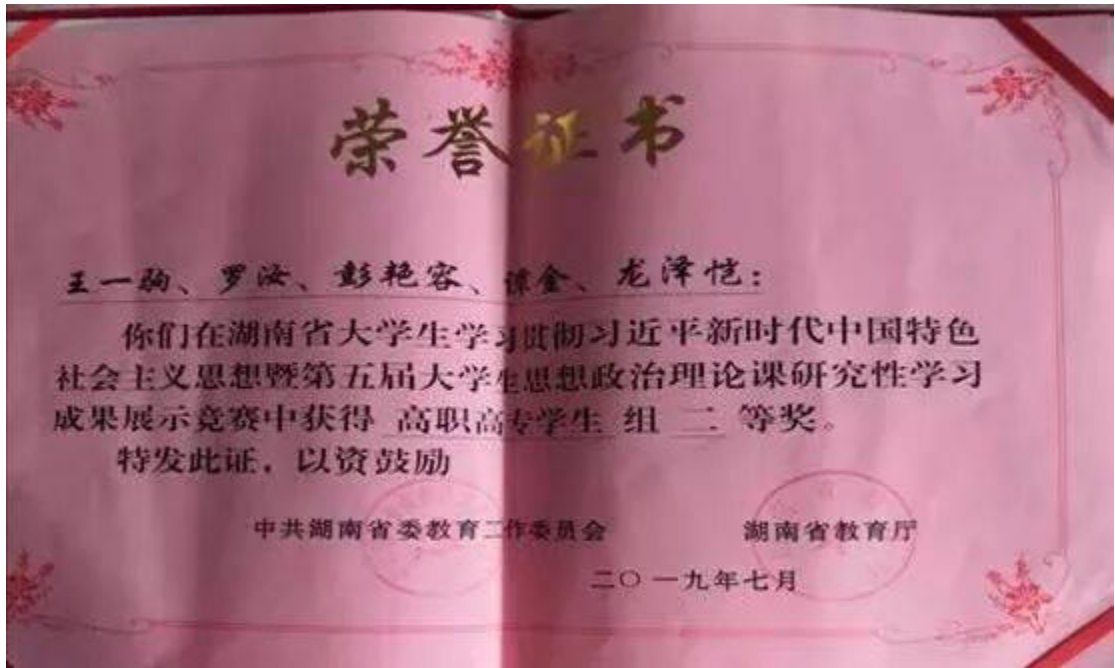 荣誉证书
王一驹、罗汝、彭艳容、谭金、龙泽恺:
你们在湖南省大学生学习贯彻习近平新时代中国特色
社会主义思想暨第五届大学生思想政治理论课研究性学习
成果展示竞赛中获得 高职高专学生 组 二 等奖。
特发此证,以资鼓励
中共湖南省委教育工作委员会 湖南省教育厅
二〇一九年七月